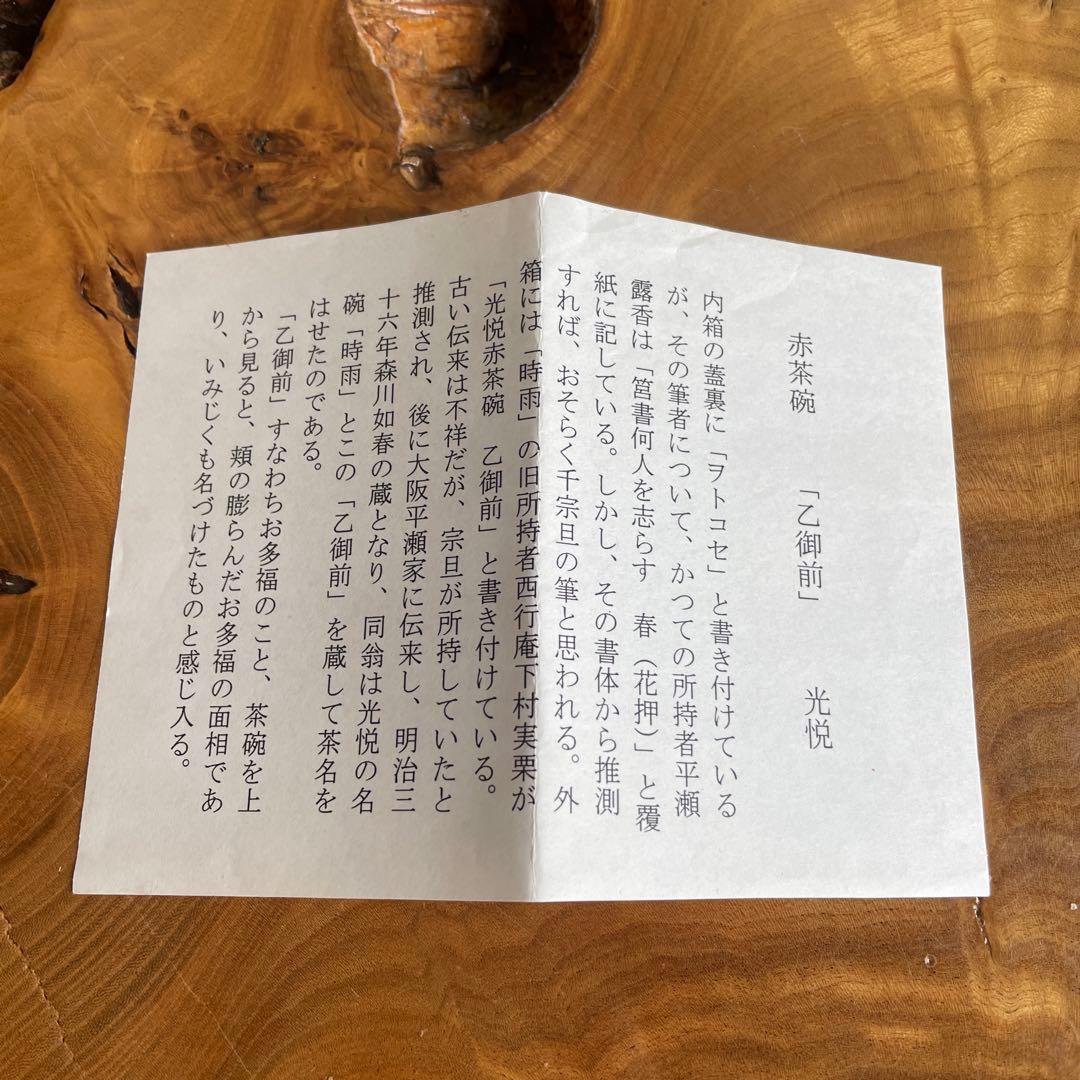 赤茶碗　「乙御前」　光悦
内箱の蓋裏に「ヲトコセ」と書き付けている
が、その筆者について、かつての所持者平瀬
露香は「筥書何人を志らす　春（花押）」と覆
紙に記している。しかし、その書体から推測
すれば、おそらく千宗旦の筆と思われる。外
箱には「時雨」の旧所持者西行庵下村実栗が
「光悦赤茶碗　乙御前」と書き付けている。
古い伝来は不祥だが、宗旦が所持していたと
推測され、後に大阪平瀬家に伝来し、明治三
十六年森川如春の蔵となり、同翁は光悦の名
碗「時雨」とこの「乙御前」を蔵して茶名を
はせたのである。
「乙御前」すなわちお多福のこと、茶碗を上
から見ると、頬の膨らんだお多福の面相であ
り、いみじくも名づけたものと感じ入る。